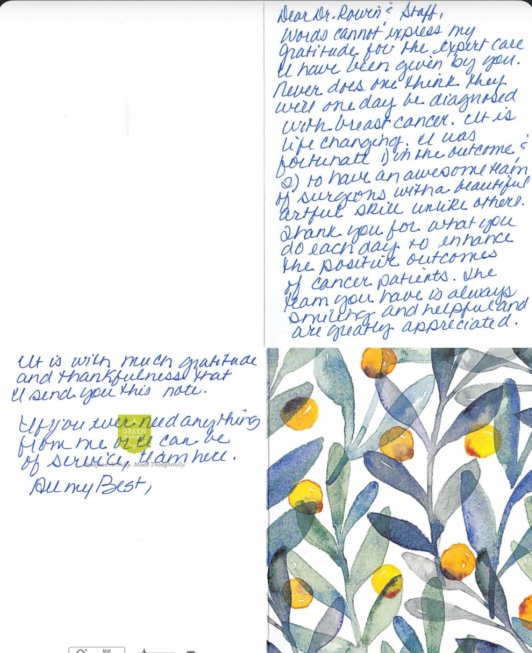 Dear Dr. Rowen & Staff,
Words cannot express my
gratitude for the expert care
I have been given by you.
Never does one think they
will one day be diagnosed
with breast cancer. It is
life changing. I was
fortunate 1) in the outcome &
2) to have an awesome team
of surgeons with a beautiful
artful skill unlike others.
Thank you for what you
do each day to enhance
the positive outcomes
of cancer patients. The
team you have is always
smiling and helpful and
are greatly appreciated.
It is with much gratitude
and thankfulness that
I send you this note.
If you ever need anything
from me or if I can be
of service, I am here.
All my Best,
GREEN
Made Thoughtfully.